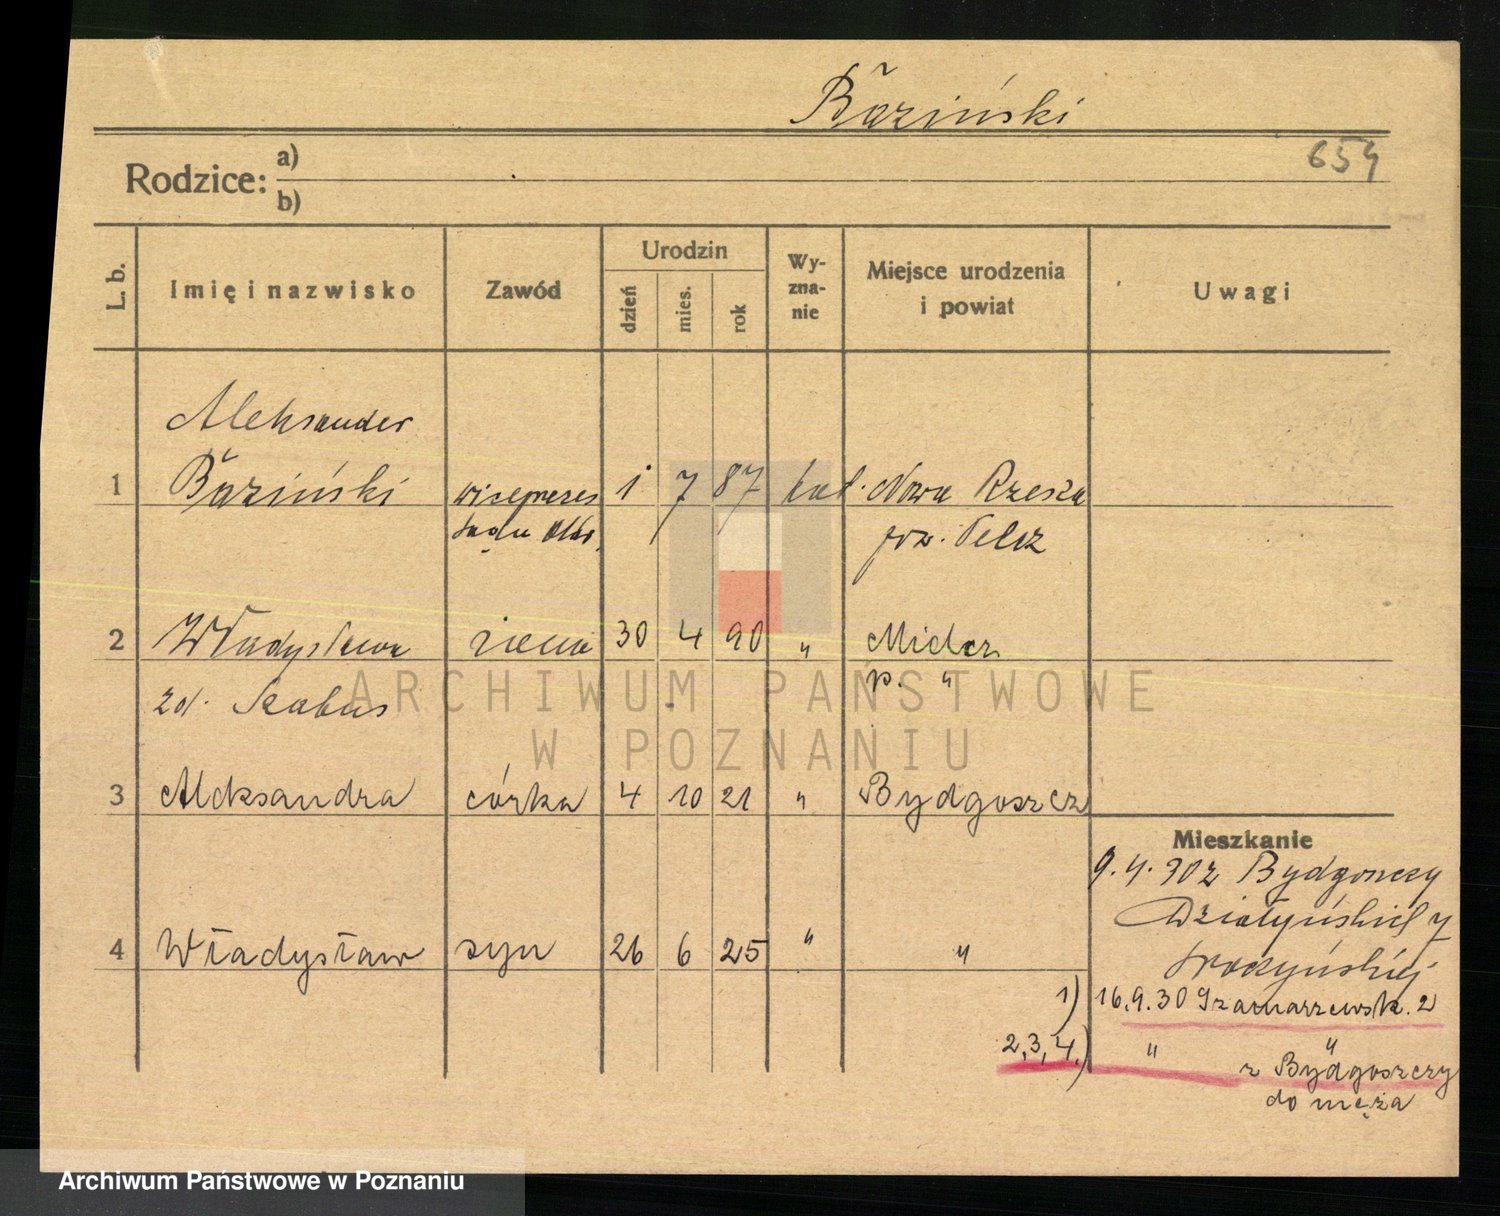 Baziński
654
Rodzice: a)
b)
L. b.
Imię i nazwisko
Zawód
Urodzin
dzień
mies.
rok
Wy-
zna-
nie
Miejsce urodzenia
i powiat
Uwagi
Aleksander
1 Baziński wiceprezes 1 7 87 kat. Nowa Rzesza
Sądu Okr. pow.
2 Władysława żona 30 4 90 "
zd. Szabus p. "
3 Aleksandra córka 4 10 21 " Bydgoszcz
Mieszkanie
9.4.30 z Bydgoszczy
4 Władysław syn 26 6 25 " "
1) 16.9.30 2
2,3,4) " "
z Bydgoszczy
do męża
ARCHIWUM PAŃSTWOWE
W POZNANIU
Archiwum Państwowe w Poznaniu